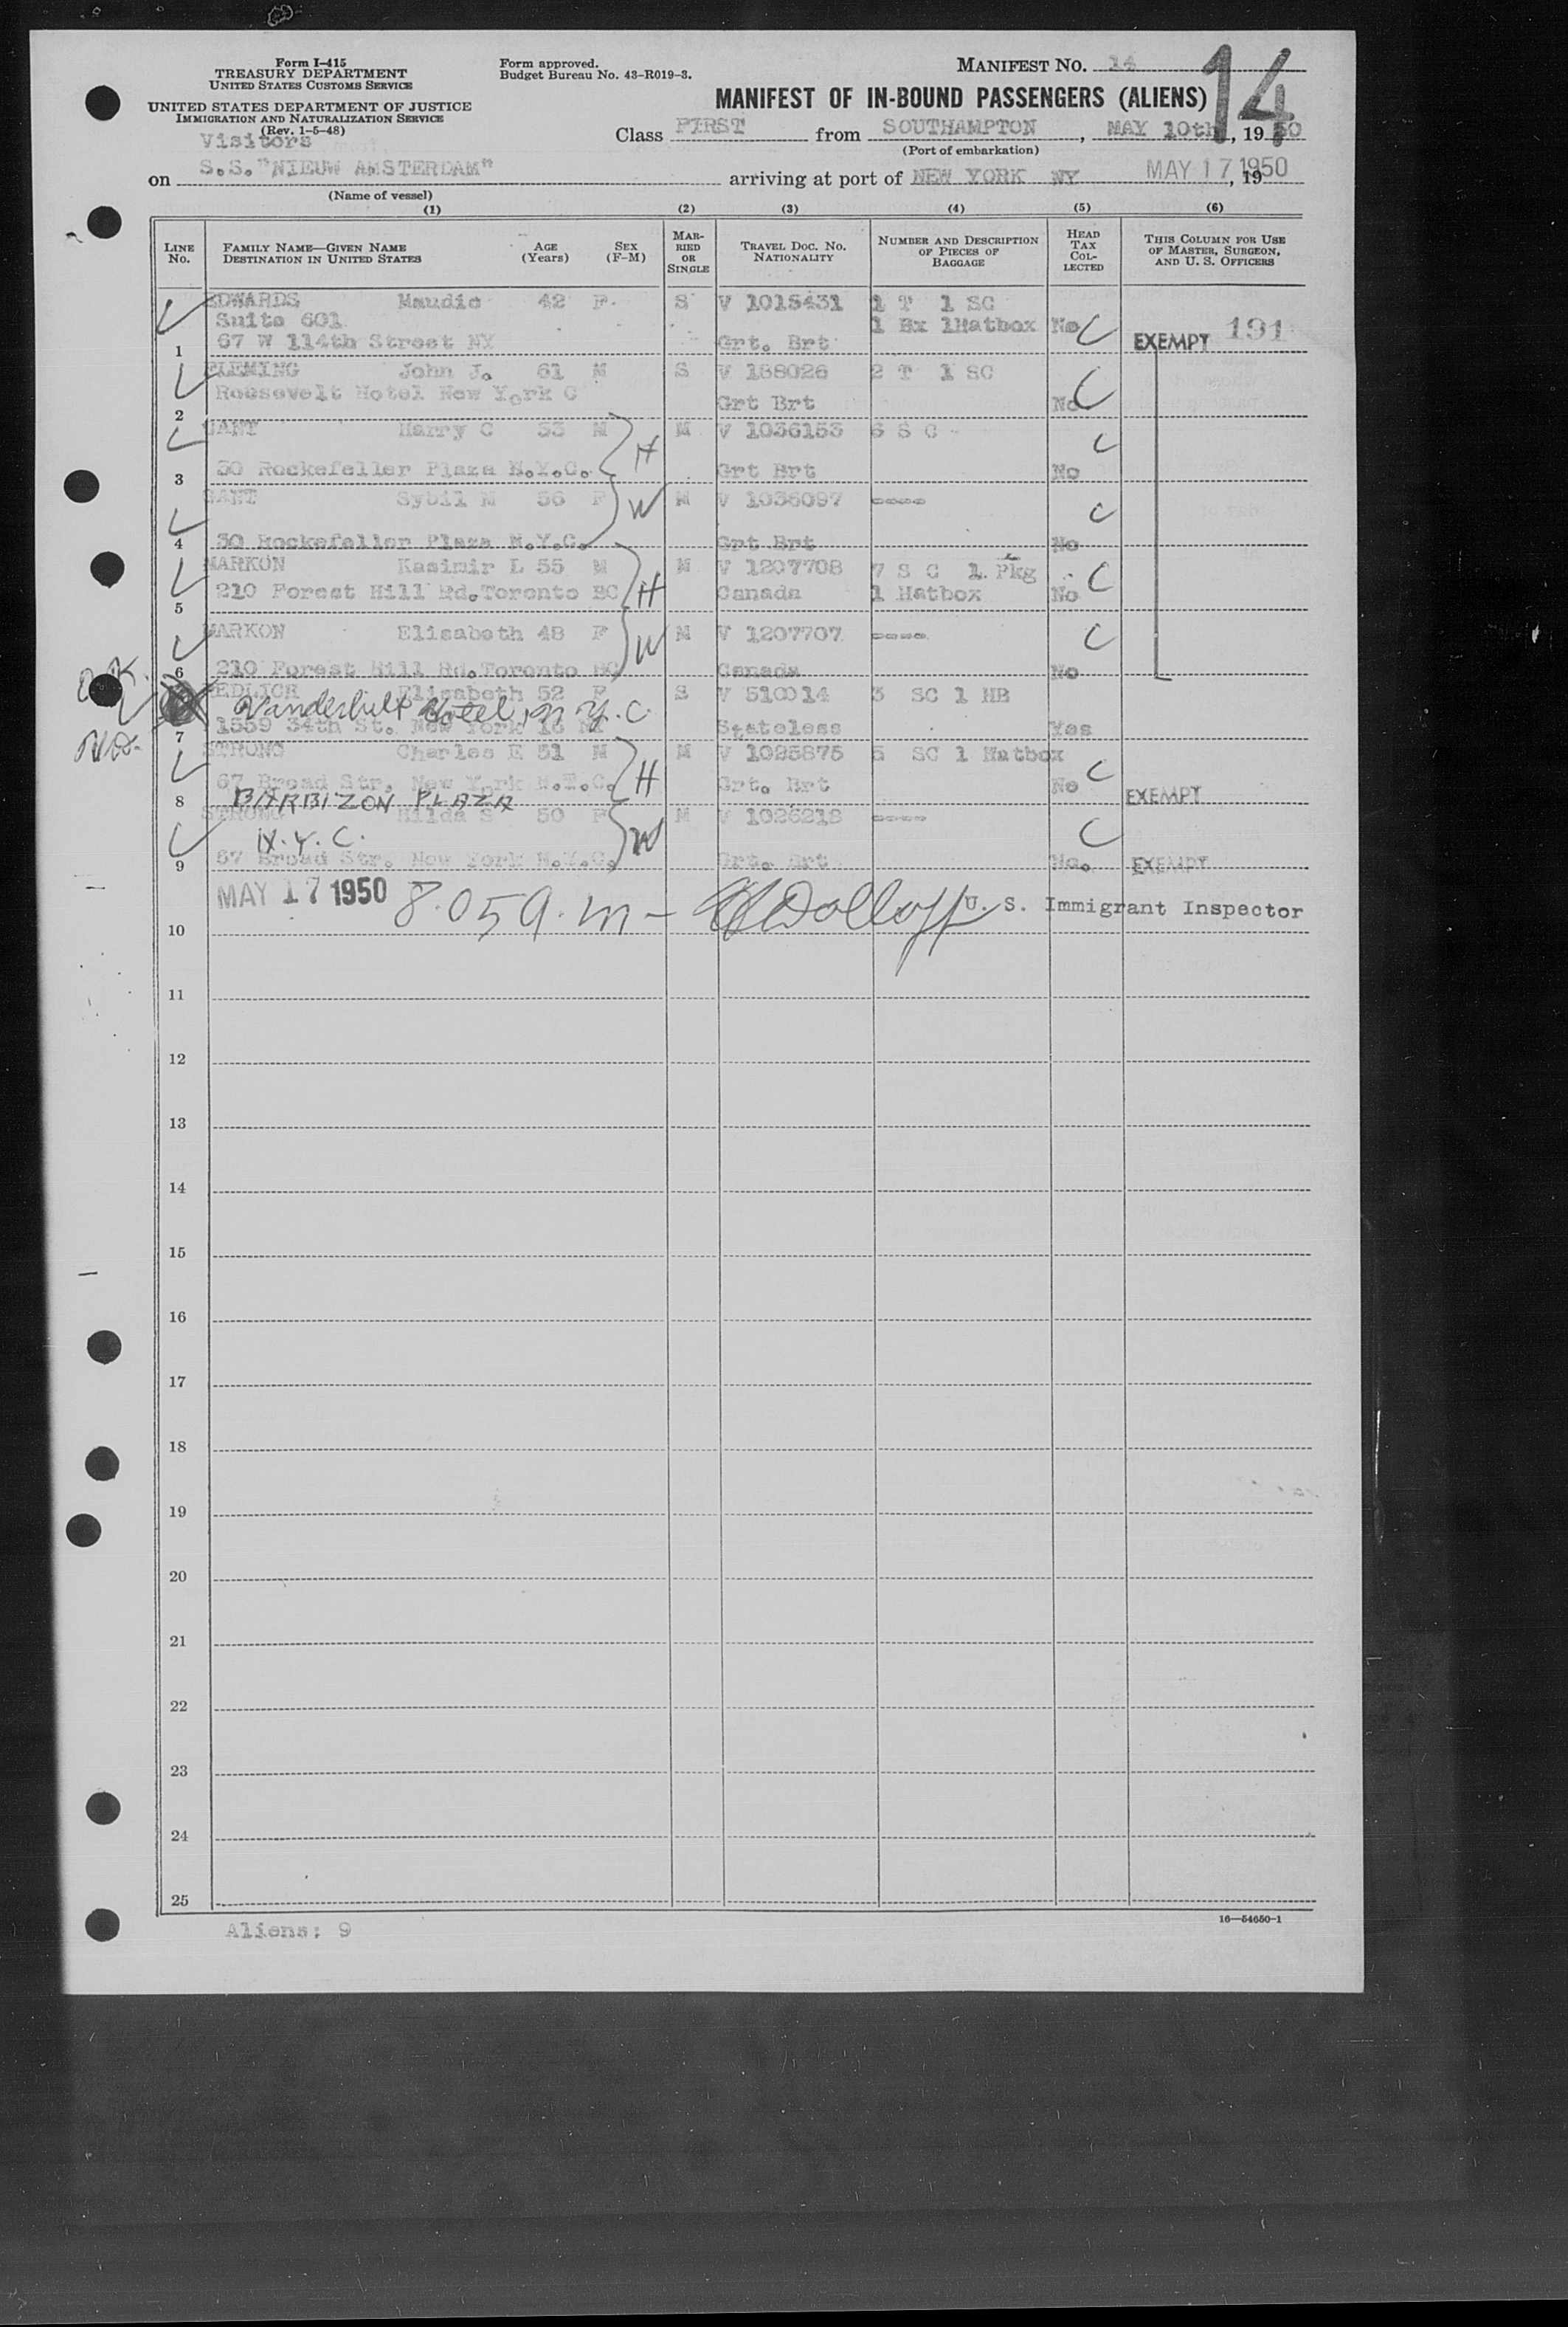 Form I-415
TREASURY DEPARTMENT
UNITED STATES CUSTOMS SERVICE
UNITED STATES DEPARTMENT OF JUSTICE
IMMIGRATION AND NATURALIZATION SERVICE
(Rev. 1-5-48)
Visitors
Form approved.
Budget Bureau No. 43-R019-3.
MANIFEST NO. 14
14
MANIFEST OF IN-BOUND PASSENGERS (ALIENS)
Class FIRST from SOUTHAMPTON, MAY 10th, 1950
(Port of embarkation)
on S.S."NIEUW AMSTERDAM" arriving at port of NEW YORK NY MAY 17 1950, 19
(Name of vessel)
(1) (2) (3) (4) (5) (6)
LINE No. FAMILY NAME—GIVEN NAME DESTINATION IN UNITED STATES AGE (Years) SEX (F-M) MARRIED OR SINGLE TRAVEL DOC. NO. NATIONALITY NUMBER AND DESCRIPTION OF PIECES OF BAGGAGE HEAD TAX COLLECTED THIS COLUMN FOR USE OF MASTER, SURGEON, AND U. S. OFFICERS
EDWARDS Maudie 42 F S V 1015431 1 T 1 SC
Suite 601 1 Bx 1Hatbox No C EXEMPT 191
1 67 W 114th Street NY Grt. Brt
FLEMING John J. 61 M S V 188026 2 T 1 SC
Roosevelt Hotel New York C Grt Brt No C
2
Harry C 53 M H M V 1036153 6 S C C
3 30 Rockefeller Plaza N.Y.C. Grt Brt No
Sybil M 56 F W M V 1036097 ---- C
4 30 Rockefeller Plaza N.Y.C. Grt Brt No
MARKON Kasimir L 55 M H M V 1207708 7 S C 1 Pkg C
210 Forest Hill Rd.Toronto BC Canada 1 Hatbox No
5
MARKON Elisabeth 48 F W M V 1207707 ---- C
6 210 Forest Hill Rd.Toronto BC Canada No
O.K.
Elisabeth 52 F S V 510014 3 SC 1 HB
Vanderbilt Hotel, N.Y.C.
7 1559 34th St. New York 16 NY Stateless Yes
STRONG Charles E 51 M H M V 1025875 5 SC 1 Hatbox C
67 Broad Str. New York N.Y.C. Grt. Brt No
8 BARBIZON PLAZA EXEMPT
STRONG Hilda S 50 F W M V 1026218 ---- C
N.Y.C.
9 67 Broad Str. New York N.Y.C. Grt. Brt No. EXEMPT
MAY 17 1950 8.05 a.m — U. S. Immigrant Inspector
10
11
12
13
14
15
16
17
18
19
20
21
22
23
24
25
Aliens: 9
16—54650-1